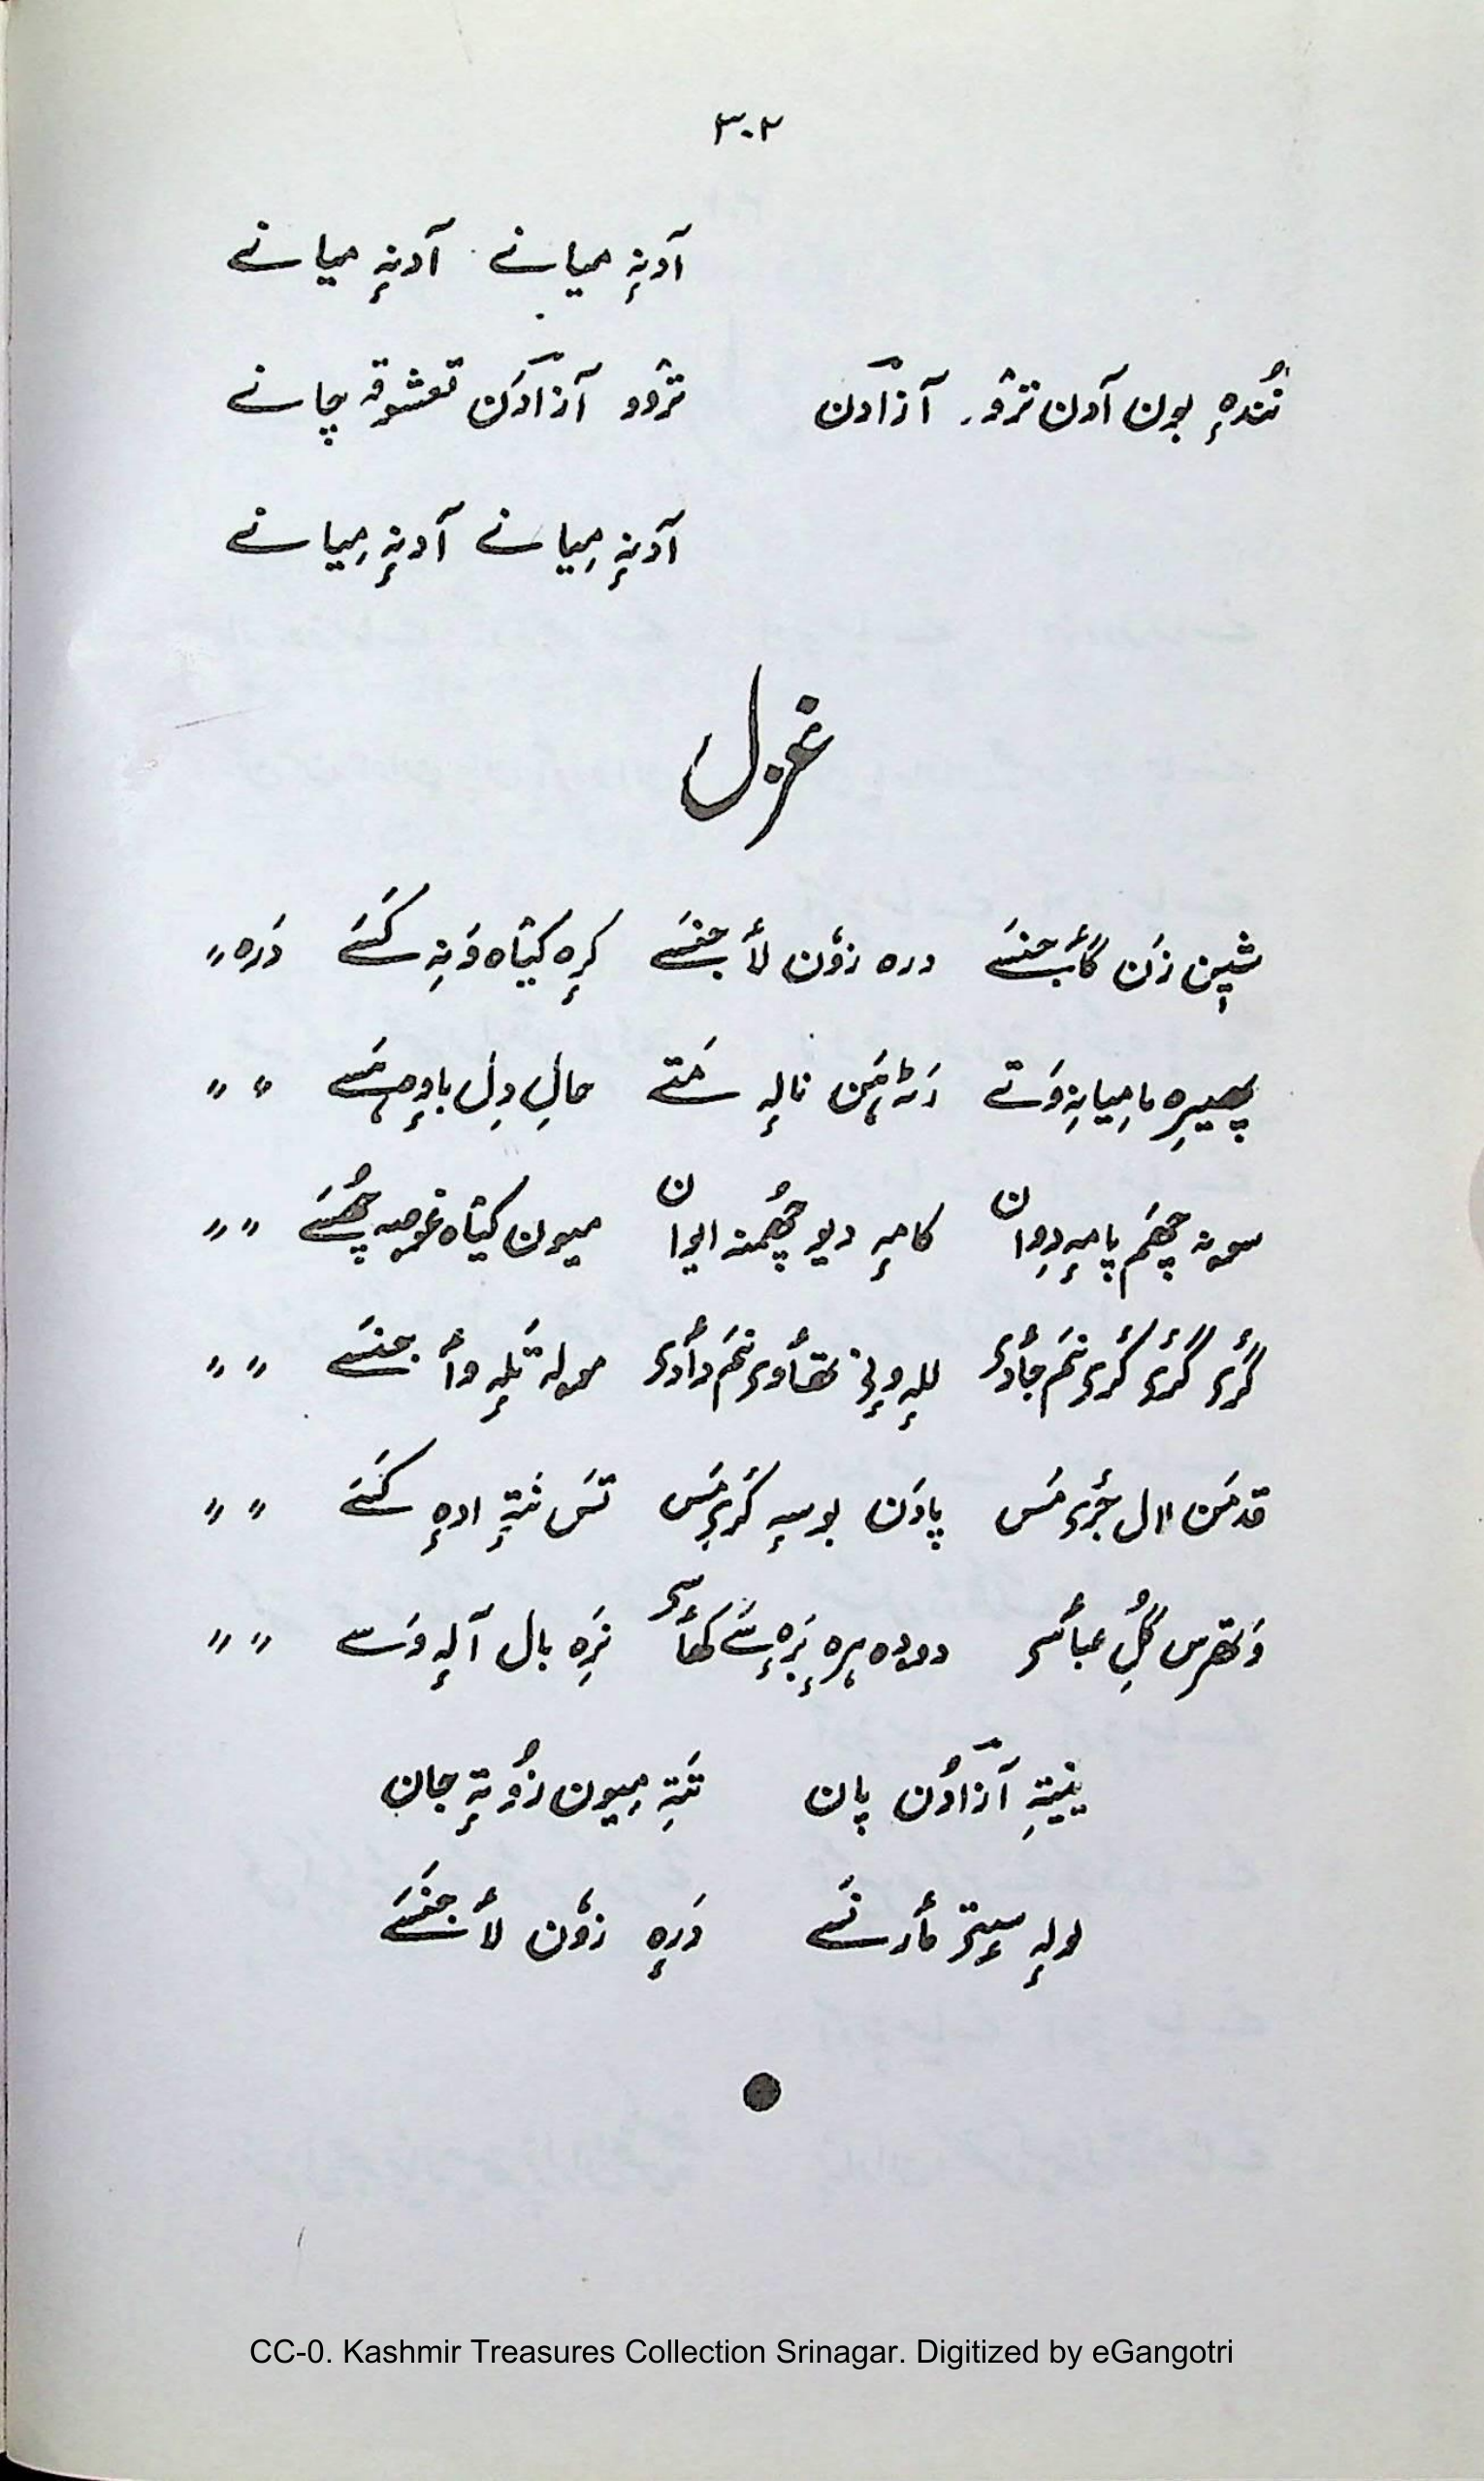 ۳۰۲
آدنہٕ میانے آدنہٕ میانے
نُندہٕ بون آدن ترٛوو آزادن ترٛوو آزادَن تعشوقہ چانے
آدنہٕ مِیانے آدنہٕ مِیانے
غزل
شیٖن زَن گأجنسَے درہ زوٗن لأجنسَے کرِہ کیٛاہ وَنہِ کَسَے دَرہ "
پھیرِہ نا مِیانہِ وَتے رَٹہ ہَن نالہٕ مَتے حالِ دِل باوٕہَسَے " "
سونہ چھَم پامہٕ دِوان کامہٕ دیو چھُمنہ ایوان میون کیٛاہ غرصہ چھُسَے " "
گَرۍ گَرۍ کٔرۍنَم جأدۍ للہٕ وٕنۍ تھأوۍنَم دأدۍ مولہ تَلہٕ وأجنسَے " "
قدمَن لال جٔرۍمَس پادَن بوسہٕ کٔرۍمَس تَس نتہٕ ادہٕ کَسَے " "
وَتھرس گُلِ عباسۍ دودہ ہرہ بَرٕہ سَے کھأسۍ نَرِہ نال آلہٕ وَسے " "
ینیتہِ آزادُن پان تَتہِ میون زُو تہٕ جان
لولہٕ سٟتۍ مأرنَسے دَرہٕ زوٗن لأجنسَے
CC-0. Kashmir Treasures Collection Srinagar. Digitized by eGangotri